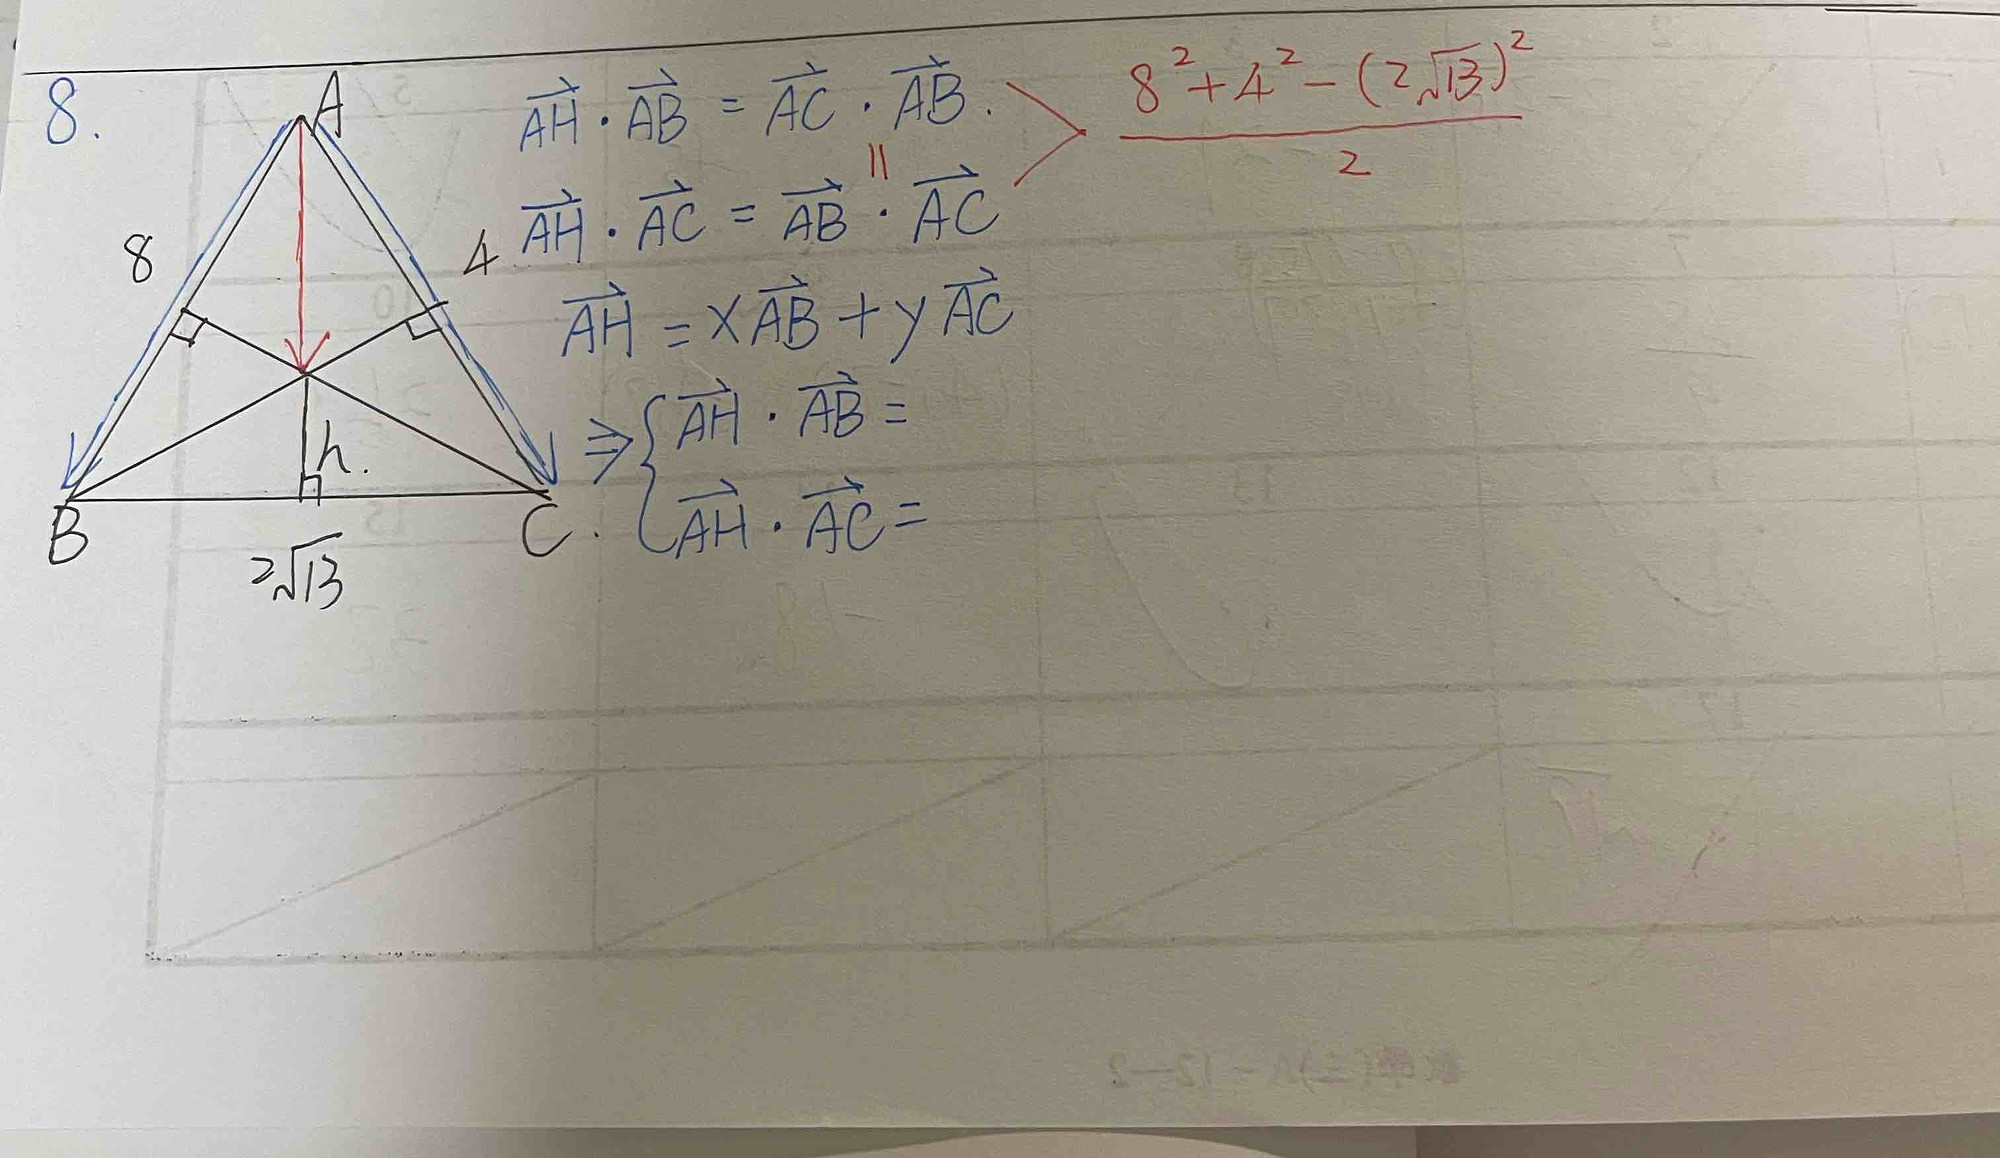 8.
A
8
4
h.
B
C.
2√13
AH · AB = AC · AB.
=
AH · AC = AB · AC
8² + 4² - (2√13)²
2
AH = xAB + yAC
⇒ { AH · AB =
AH · AC =